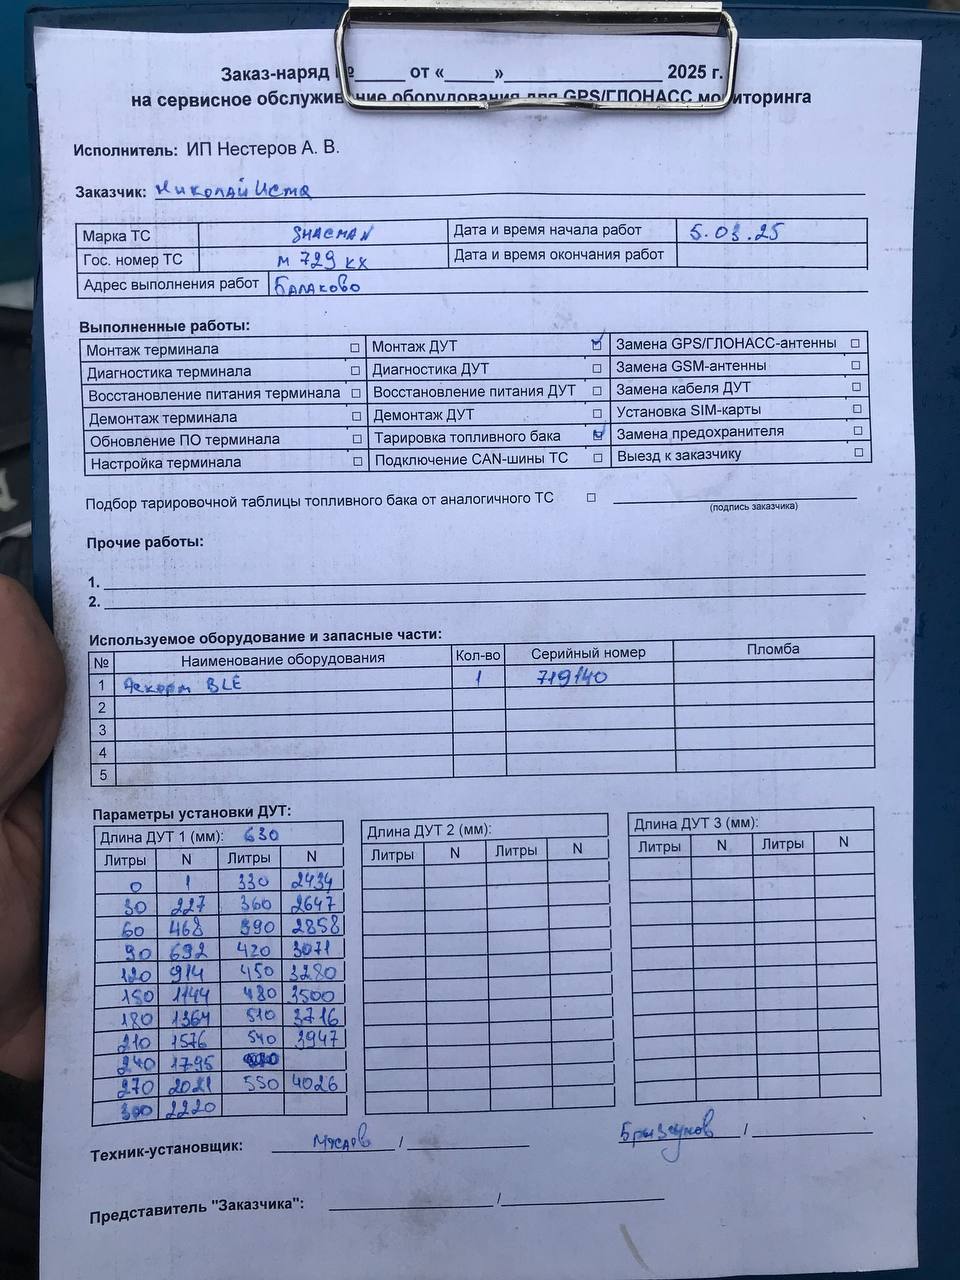 Заказ-наряд №_____ от «_____»________________ 2025 г.
на сервисное обслуживание оборудования для GPS/ГЛОНАСС мониторинга
Исполнитель: ИП Нестеров А. В.
Заказчик: Николай Иста
Марка ТС SHACMAN Дата и время начала работ 5.03.25
Гос. номер ТС м 729 кх Дата и время окончания работ
Адрес выполнения работ Балаково
Выполненные работы:
Монтаж терминала ☐ Монтаж ДУТ ☑ Замена GPS/ГЛОНАСС-антенны ☐
Диагностика терминала ☐ Диагностика ДУТ ☐ Замена GSM-антенны ☐
Восстановление питания терминала ☐ Восстановление питания ДУТ ☐ Замена кабеля ДУТ ☐
Демонтаж терминала ☐ Демонтаж ДУТ ☐ Установка SIM-карты ☐
Обновление ПО терминала ☐ Тарировка топливного бака ☑ Замена предохранителя ☐
Настройка терминала ☐ Подключение CAN-шины ТС ☐ Выезд к заказчику ☐
Подбор тарировочной таблицы топливного бака от аналогичного ТС ☐
(подпись заказчика)
Прочие работы:
1.
2.
Используемое оборудование и запасные части:
№ Наименование оборудования Кол-во Серийный номер Пломба
1 BLE 1 719140
2
3
4
5
Параметры установки ДУТ:
Длина ДУТ 1 (мм): 630 Длина ДУТ 2 (мм): Длина ДУТ 3 (мм):
Литры N Литры N Литры N Литры N Литры N Литры N
0 1 330 2434
30 227 360 2647
60 468 390 2858
90 692 420 3071
120 914 450 3280
150 1144 480 3500
180 1364 510 3716
210 1576 540 3947
240 1795
270 2021 550 4026
300 2220
Техник-установщик: / /
Представитель "Заказчика": /